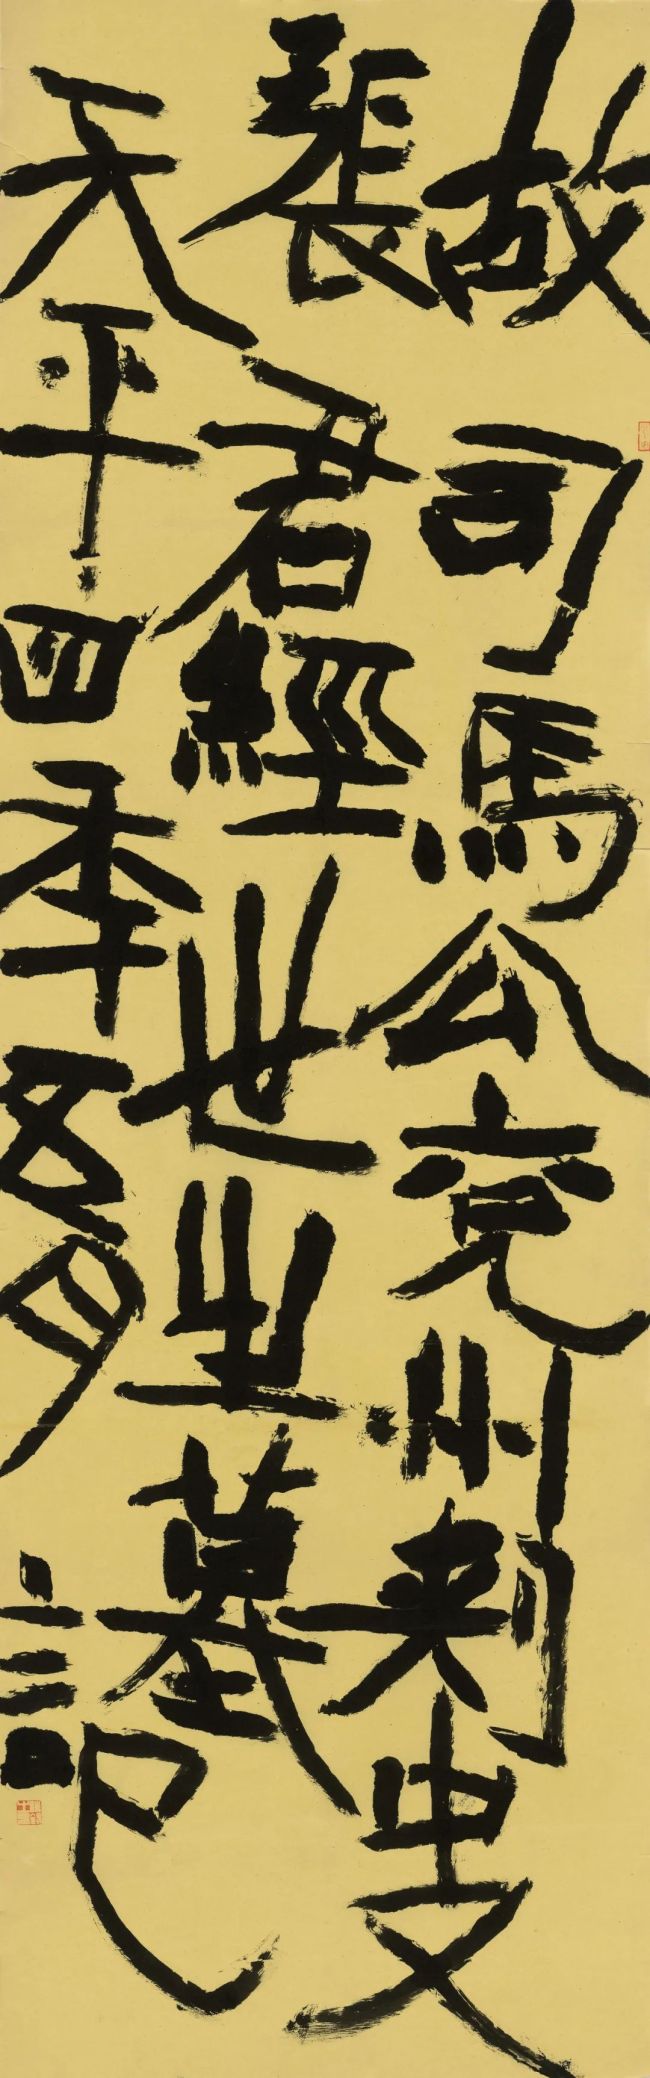 故司馬公兗州刺史
張君經世生墓
天平四年五月記